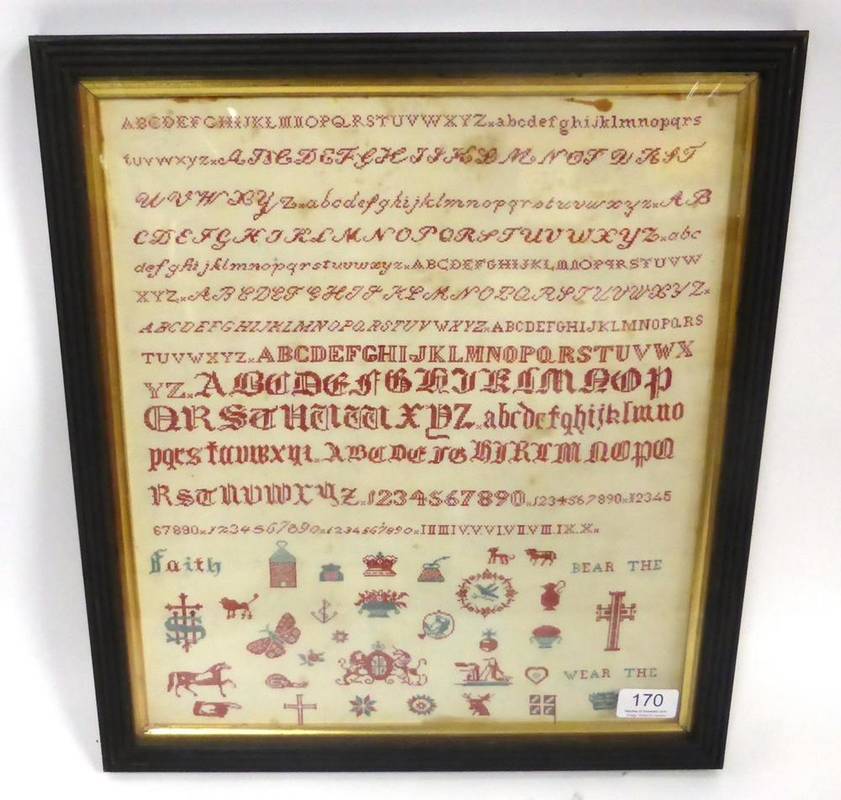 ABCDEFGHIJKLMNOPQRSTUVWXYZ×abcdefghijklmnopqrs
tuvwxyz×ABCDEFGHIJKLMNOPQRST
UVWXYZ×abcdefghijklmnopqrstuvwxyz×AB
CDEFGHIKLMNOPQRSTUVWXYZ×abc
defghijklmnopqrstuvwxyz×ABCDEFGHIJKLMNOPQRSTUVW
XYZ×ABCDEFGHIJKLMNOPQRSTUVWXYZ×
ABCDEFGHIJKLMNOPQRSTUVWXYZ×ABCDEFGHIJKLMNOPQRS
TUVWXYZ×ABCDEFGHIJKLMNOPQRSTUVWX
YZ×ABCDEFGHIKLMNOP
QRSTUVWXYZ×abcdefghijklmno
pqrstuvwxyz×ABCDEFGHIKLMNOPQ
RSTUVWXYZ×1234567890×1234567890×12345
67890×1234567890×1234567890×I II III IV V VI VII VIII IX X×
Faith
BEAR THE
IHS
WEAR THE
170